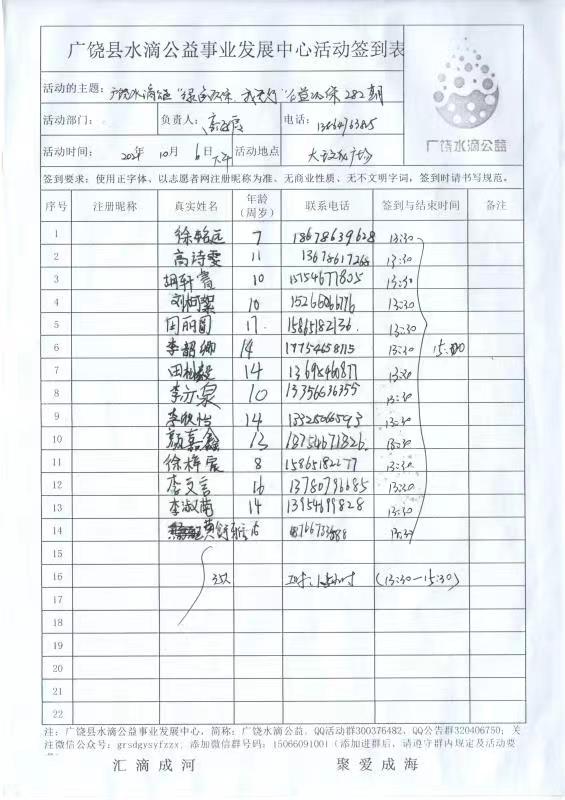 广饶县水滴公益事业发展中心活动签到表
广饶水滴公益
活动的主题：广饶水滴公益"绿色环保，我先行"公益环保282期
活动部门： 负责人： 电话：
活动时间：2024年 10月 6日下午 活动地点 大王文化广场
签到要求：使用正字体、以志愿者网注册昵称为准、无商业性质、无不文明字词，签到时请书写规范。
序号 注册昵称 真实姓名 年龄（周岁） 联系电话 签到与结束时间 备注
1 徐铭远 7 18678639628 13:30
2 高诗雯 11 13678617268 13:30
3 胡轩 10 15754677805 13:30
4 刘柯絮 10 13:30
5 田丽圆 17 15865182736 13:30
6 李韶卿 14 17754658115 13:30 15:30
7 田 14 13:30
8 李亦泉 10 13356636355 13:30
9 李欣怡 14 13:30
10 颜嘉鑫 13 13754671326 13:30
11 徐梓宸 8 15865182277 13:30
12 李文言 16 13780796685 13:30
13 李淑南 14 13954699828 13:30
14 黄舒雅 13:30
15
16 (13:30—15:30)
17
18
19
20
21
22
注：广饶县水滴公益事业发展中心，简称：广饶水滴公益，QQ活动群300376482，QQ公告群320406750；关
注微信公众号：grsdgysyfzzx，添加微信群号码：15066091001（添加进群后，请遵守群内规定及活动要
汇滴成河 聚爱成海